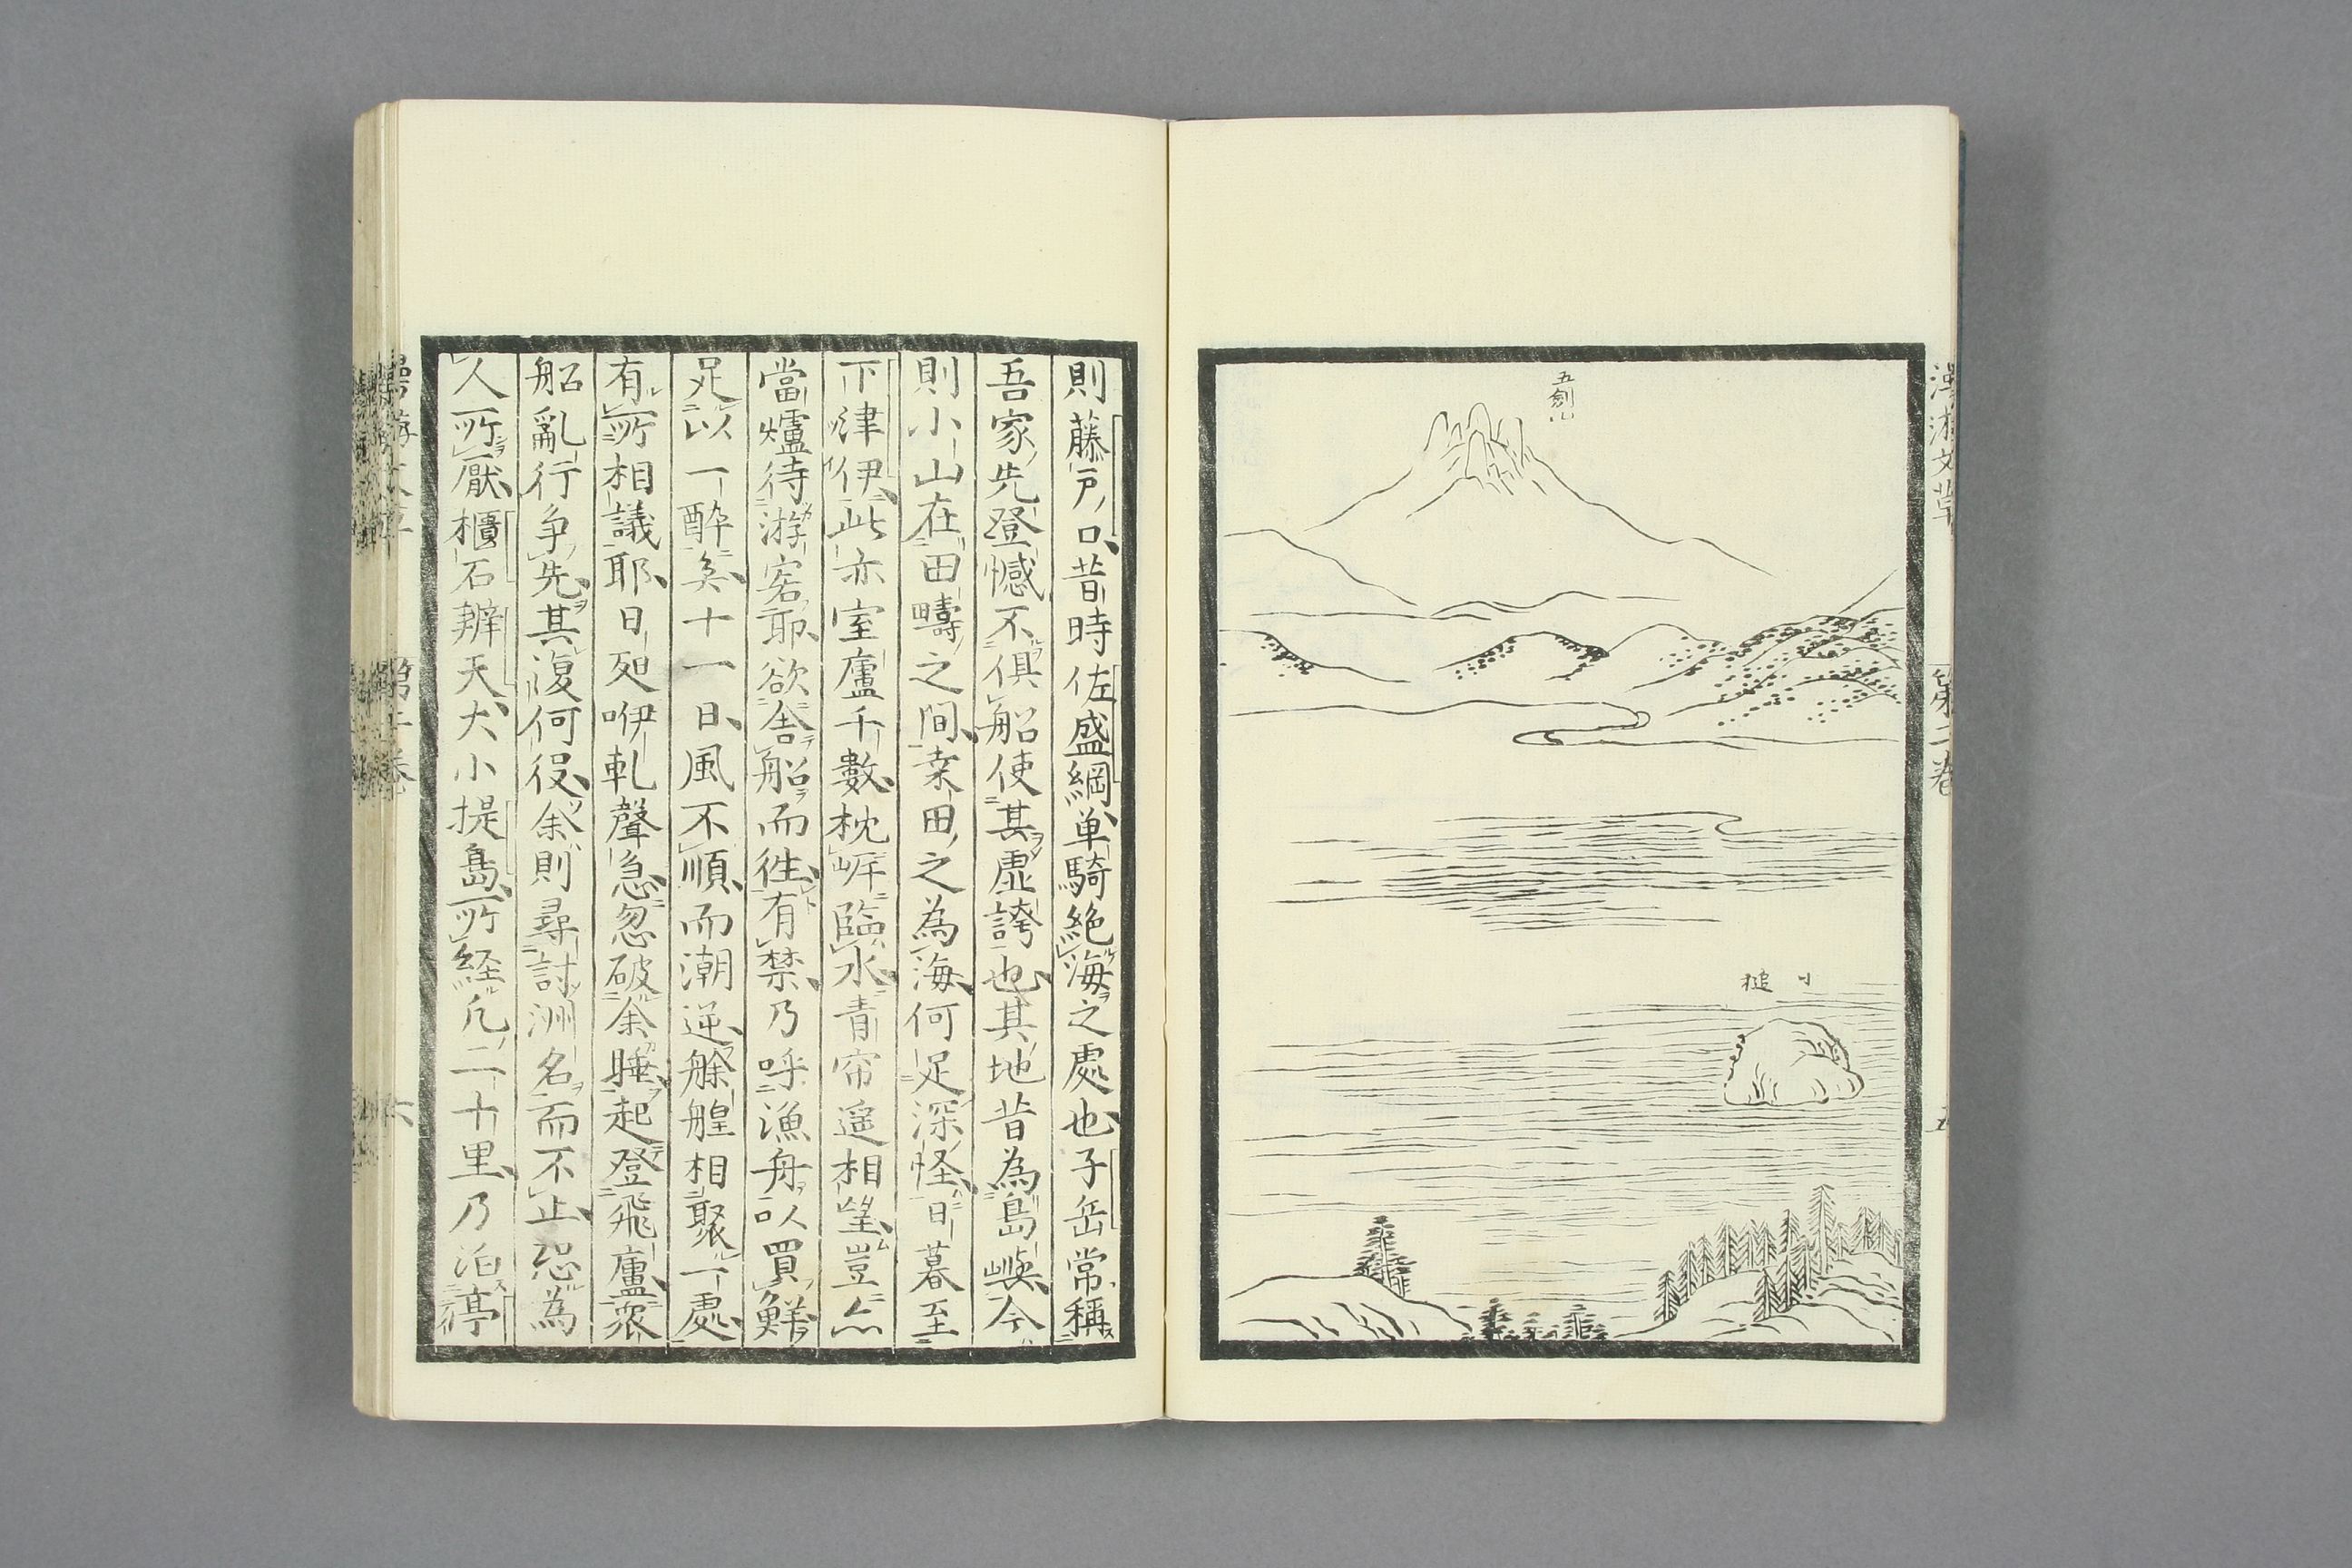 漫游文草
第二卷
五劍山
小槌
則藤戸口昔時佐盛綱単騎絶海之處也子岳常稱
吾家先登憾不倶船使其虛誇也其地昔為島嶼今
則小山在田疇之間桒田之為海何足深怪日暮至
下津伊此亦室廬千數枕崕臨水青帘遥相望豈亼
當爐待游客耶欲舎船而徃有禁乃呼漁舟以買鮮
足以一醉矣十一日風不順而潮逆艅艎相聚一處
有所相議耶日夘咿軋聲急忽破余睡起登飛廬衆
船亂行争先其復何役余則尋討洲名而不止恐為
人所厭櫃石辨天大小提島所経凢二十里乃泊亭
第二卷
六